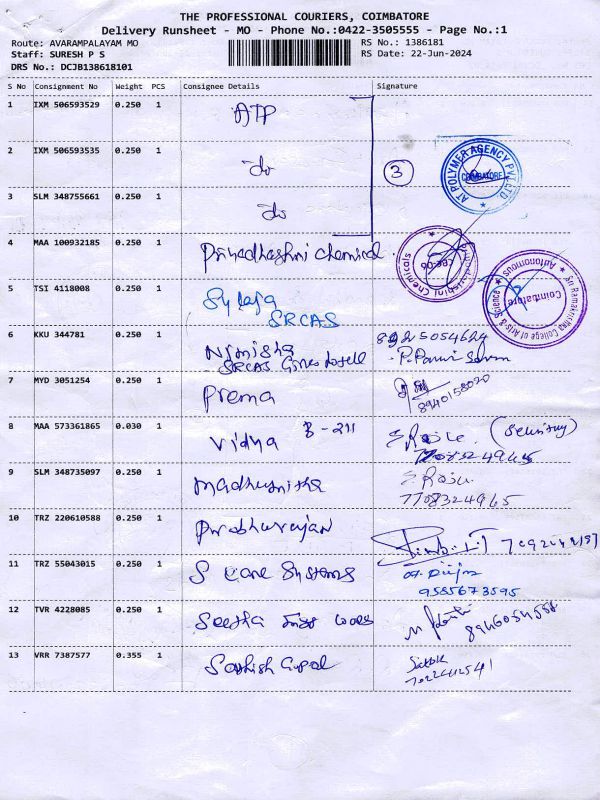 THE PROFESSIONAL COURIERS, COIMBATORE
Delivery Runsheet - MO - Phone No.:0422-3505555 - Page No.:1
Route: AVARAMPALAYAM MO
RS No.: 1386181
Staff: SURESH P S
RS Date: 22-Jun-2024
DRS No.: DCJB138618101
S No Consignment No Weight PCS Consignee Details Signature
1 IXM 506593529 0.250 1 ATP
2 IXM 506593535 0.250 1 do
3
AT POLYMER AGENCY PVT LTD
COIMBATORE
3 SLM 348755661 0.250 1 do
4 MAA 100932185 0.250 1 Priyadharshini chemical
Priyadharshini Chemicals
CBE-06
5 TSI 4118008 0.250 1
SRCAS
Sri Ramakrishna College of Arts & Science
Autonomous
Coimbatore
6 KKU 344781 0.250 1 Nimisha
SRCAS Girls Hostel
7 MYD 3051254 0.250 1 Prema
8940158020
8 MAA 573361865 0.030 1 Vidya B-211 (Security)
7708324965
9 SLM 348735097 0.250 1 Madhumitha
7708324965
10 TRZ 220610588 0.250 1 Prabhurajan
11 TRZ 55043015 0.250 1 S Care Systems
9585673595
12 TVR 4228085 0.250 1 Seetha
13 VRR 7387577 0.355 1 Sathish Gopal